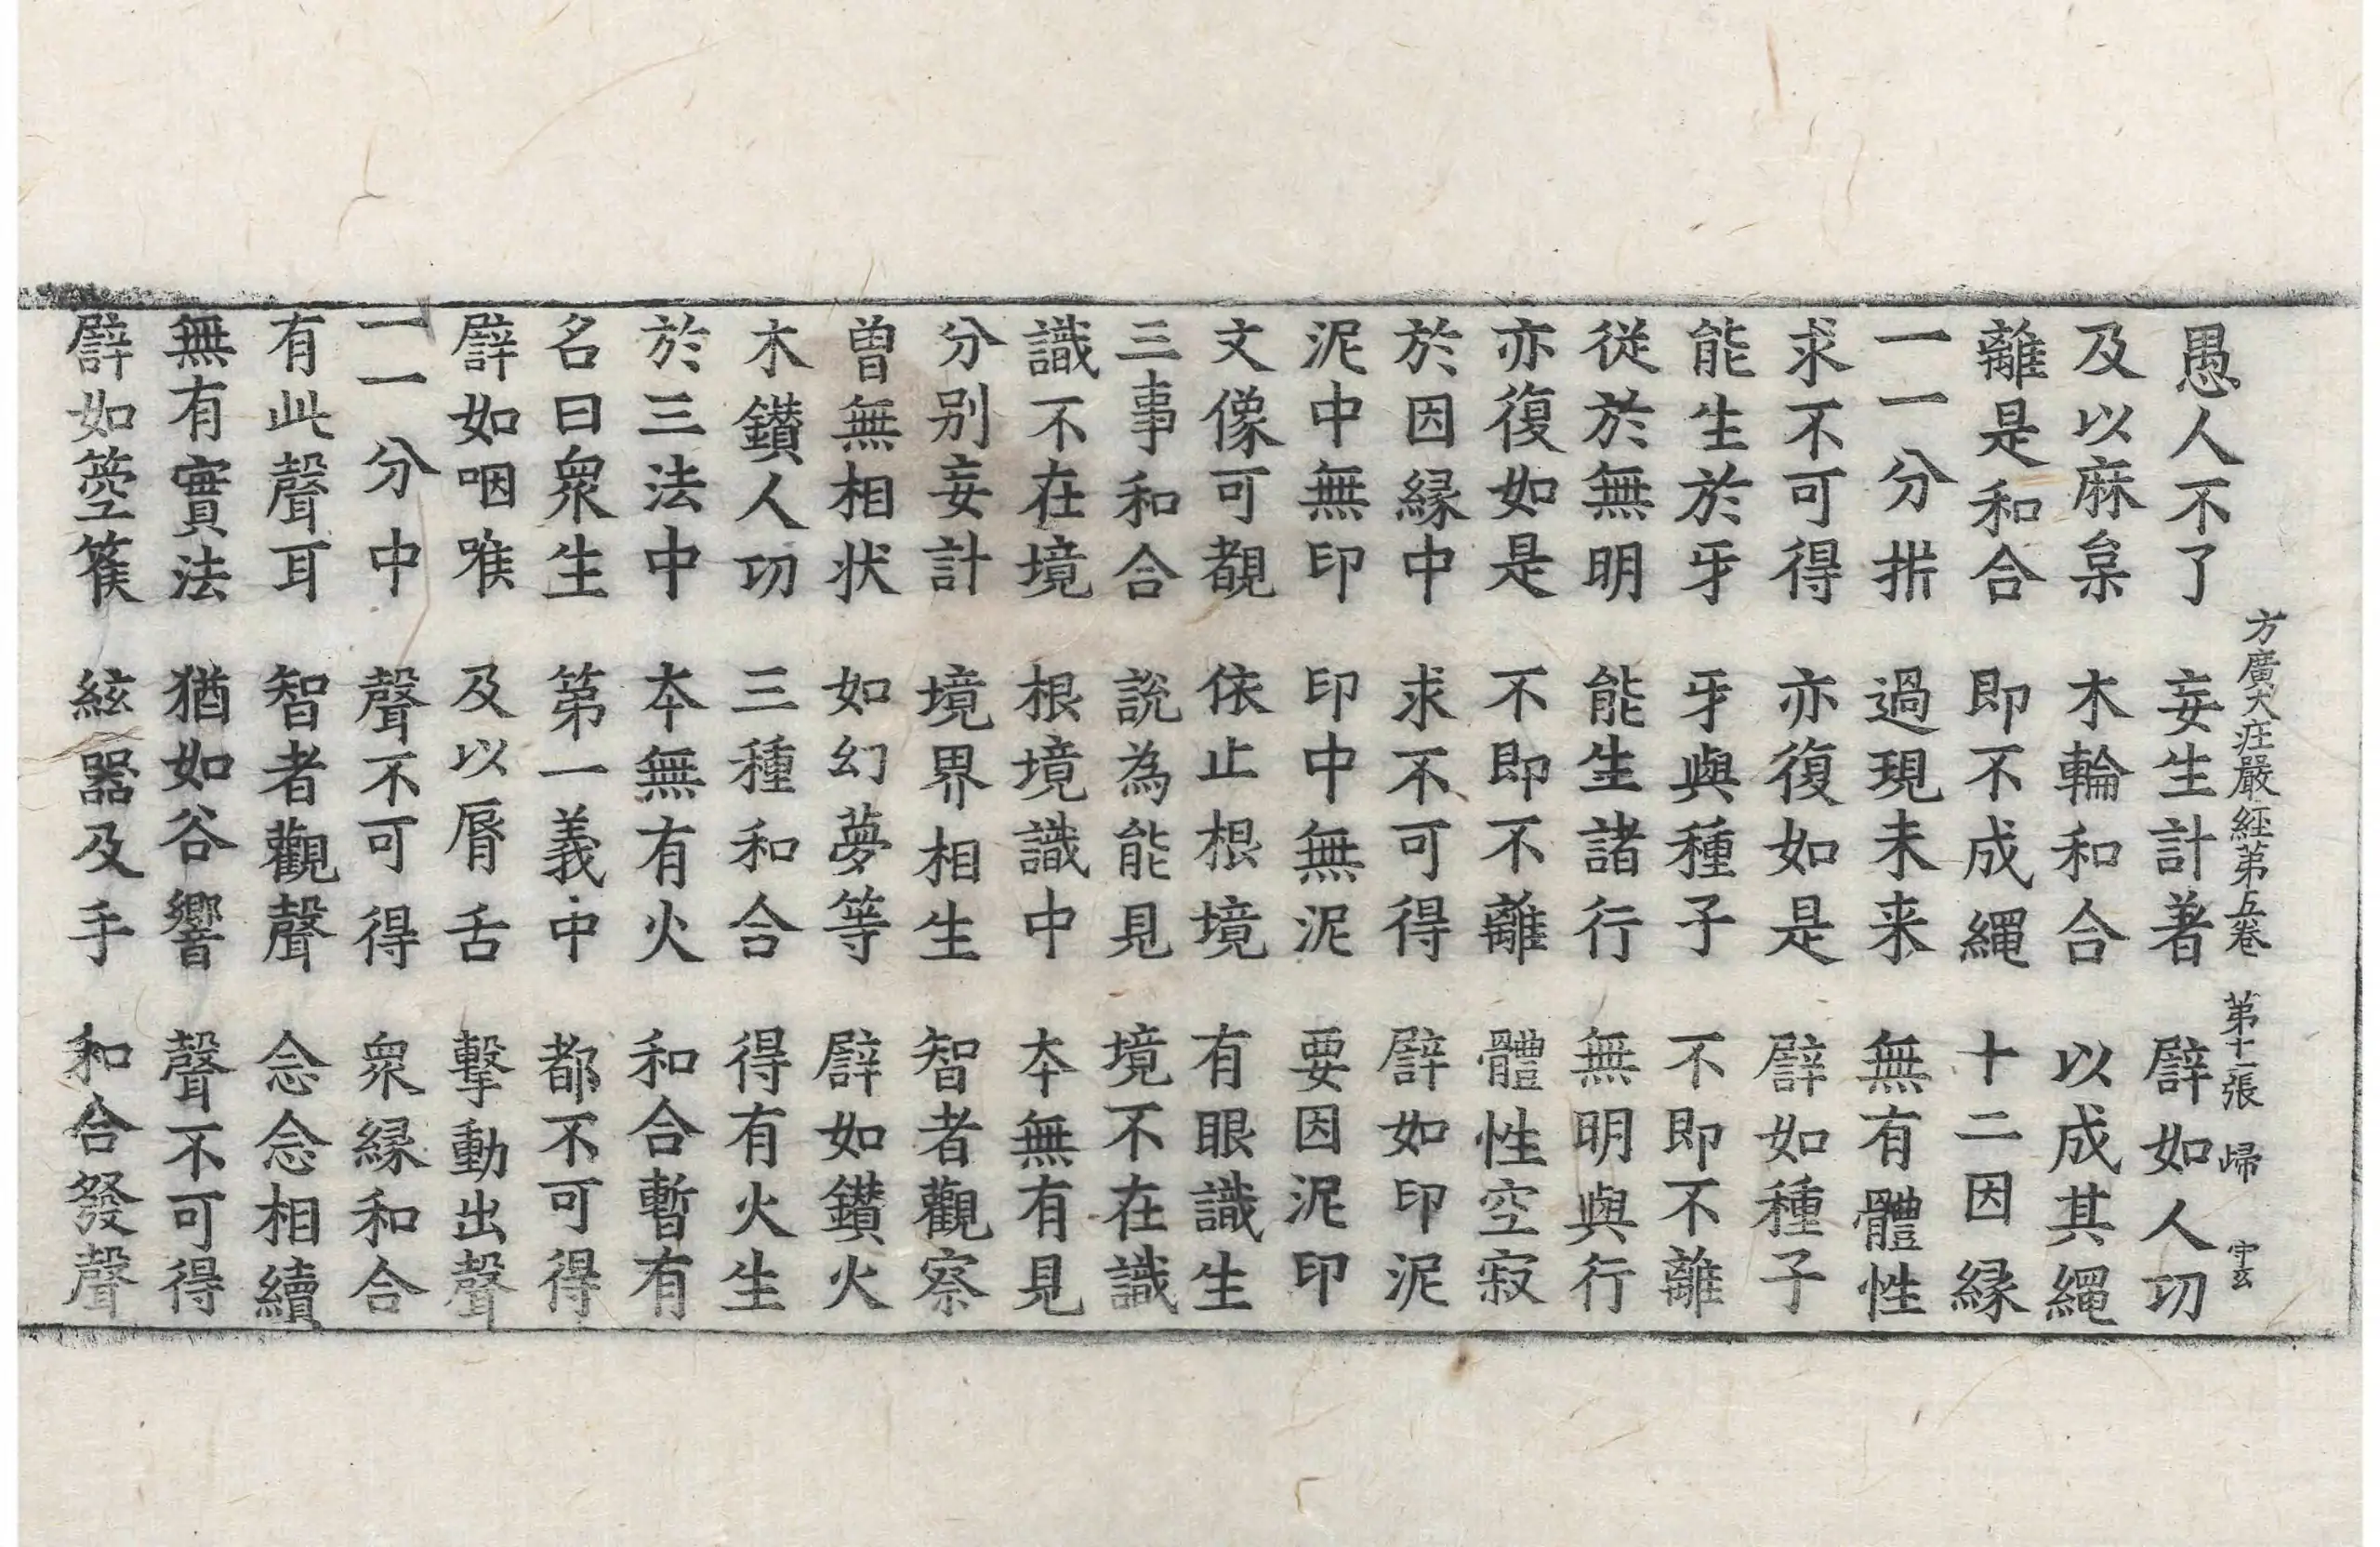 愚人不了 妄生計著 譬如人功
方廣大莊嚴經第五卷 第十二張 歸 守玄
及以麻枲 木輪和合 以成其繩
離是和合 即不成繩 十二因縁
一一分㭊 過現未来 無有體性
求不可得 亦復如是 譬如種子
能生於牙 牙與種子 不即不離
從於無明 能生諸行 無明與行
亦復如是 不即不離 體性空寂
於因縁中 求不可得 譬如印泥
泥中無印 印中無泥 要因泥印
文像可覩 依止根境 有眼識生
三事和合 說為能見 境不在識
識不在境 根境識中 本無有見
分別妄計 境界相生 智者觀察
曽無相状 如幻夢等 譬如鑚火
木鑚人功 三種和合 得有火生
於三法中 本無有火 和合暫有
名曰衆生 第一義中 都不可得
譬如咽喉 及以脣舌 擊動出聲
一一分中 聲不可得 衆縁和合
有此聲耳 智者觀聲 念念相續
無有實法 猶如谷響 聲不可得
譬如箜篌 絃器及手 和合發聲